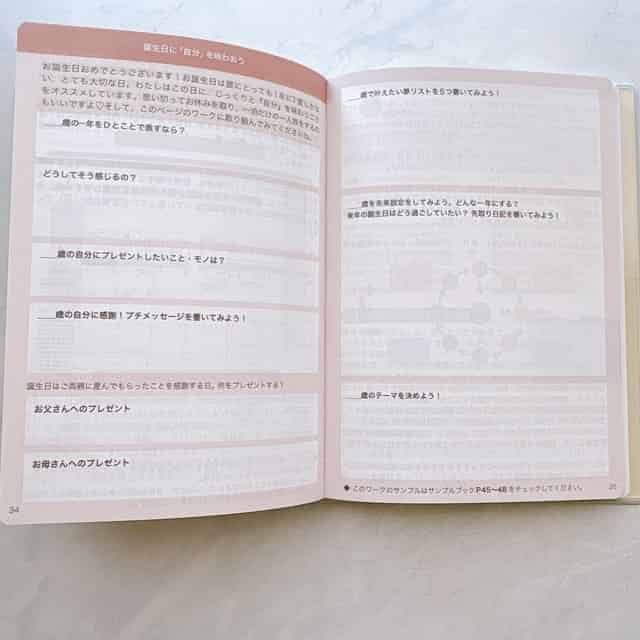 誕生日に「自分」を味わおう
お誕生日おめでとうございます！お誕生日は誰にとっても1年に1度しかな
い、とても大切な日。わたしはこの日に、じっくりと「自分」を味わうこと
をオススメしています。思い切ってお休みを取り、一泊だけの一人旅をするの
もいいですよ♡そして、このページのワークに取り組んでみてくださいね。
____歳の一年をひとことで表すなら？
どうしてそう感じるの？
____歳の自分にプレゼントしたいこと・モノは？
____歳の自分に感謝！プチメッセージを書いてみよう！
誕生日はご両親に産んでもらったことを感謝する日。何をプレゼントする？
お父さんへのプレゼント
お母さんへのプレゼント
34
____歳で叶えたい夢リストを5つ書いてみよう！
____歳を未来設定をしてみよう。どんな一年にする？
来年の誕生日はどう過ごしていたい？ 先取り日記を書いてみよう！
____歳のテーマを決めよう！
◆ このワークのサンプルはサンプルブックP45〜48をチェックしてください。
35